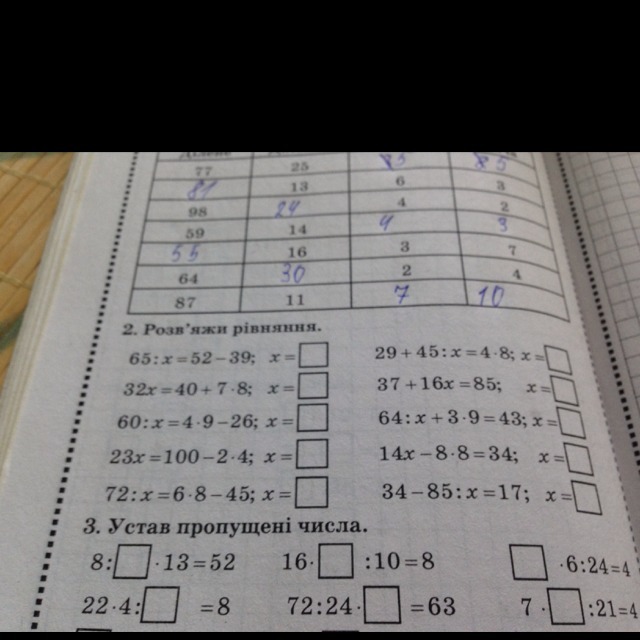 Ділене
77 25
81 13 6 3
98 24 4 2
59 14 4 3
55 16 3 7
64 30 2 4
87 11 7 10
2. Розв'яжи рівняння.
65:x=52–39; x=
29+45:x=4·8; x=
32x=40+7·8; x=
37+16x=85; x=
60:x=4·9–26; x=
64:x+3·9=43; x=
23x=100–2·4; x=
14x–8·8=34; x=
72:x=6·8–45; x=
34–85:x=17; x=
3. Устав пропущені числа.
8: ·13=52 16· :10=8 ·6:24=4
22·4: =8 72:24· =63 7· :21=4